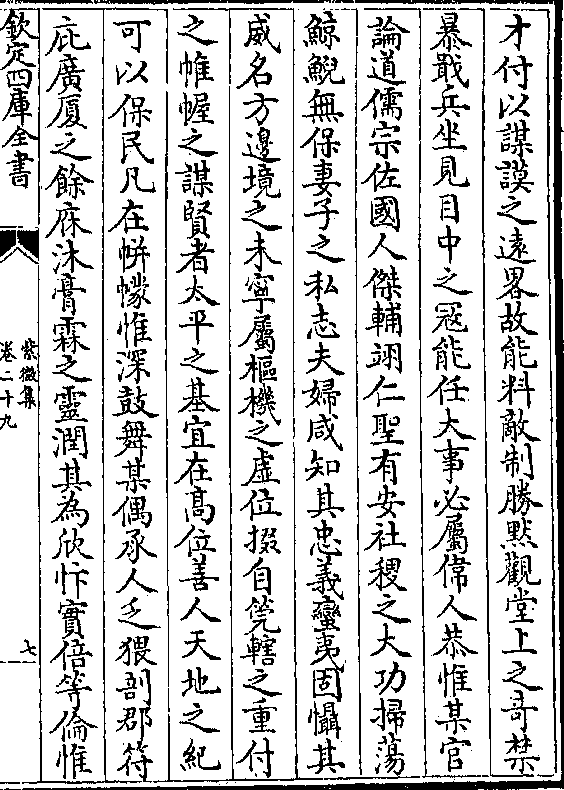 才付以謀謨之遠畧故能料敵制勝黙觀堂上之竒禁
暴戢兵坐見目中之冦能任大事必屬偉人恭惟某官
論道儒宗佐國人傑輔翊仁聖有安社稷之大功掃蕩
鯨鯢無保妻子之私志夫婦咸知其忠義蠻夷固懾其
威名方邊境之未寧屬樞機之虚位掇自筦轄之重付
之帷幄之謀賢者太平之基宜在髙位善人天地之紀
可以保民凡在帡幪惟深鼓舞某偶承人乏猥剖郡符
庇廣厦之餘庥沐膏霖之靈潤其為欣忭實倍等倫惟
欽定四庫全書
紫微集
卷二十九
七